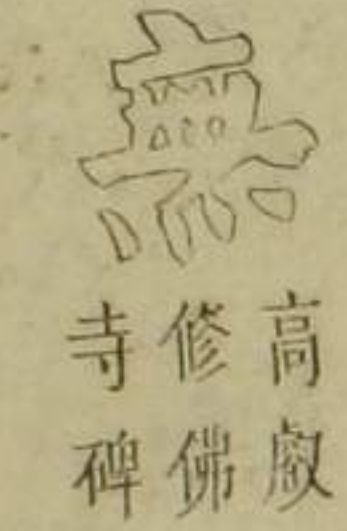 無
高叡
修佛
寺碑